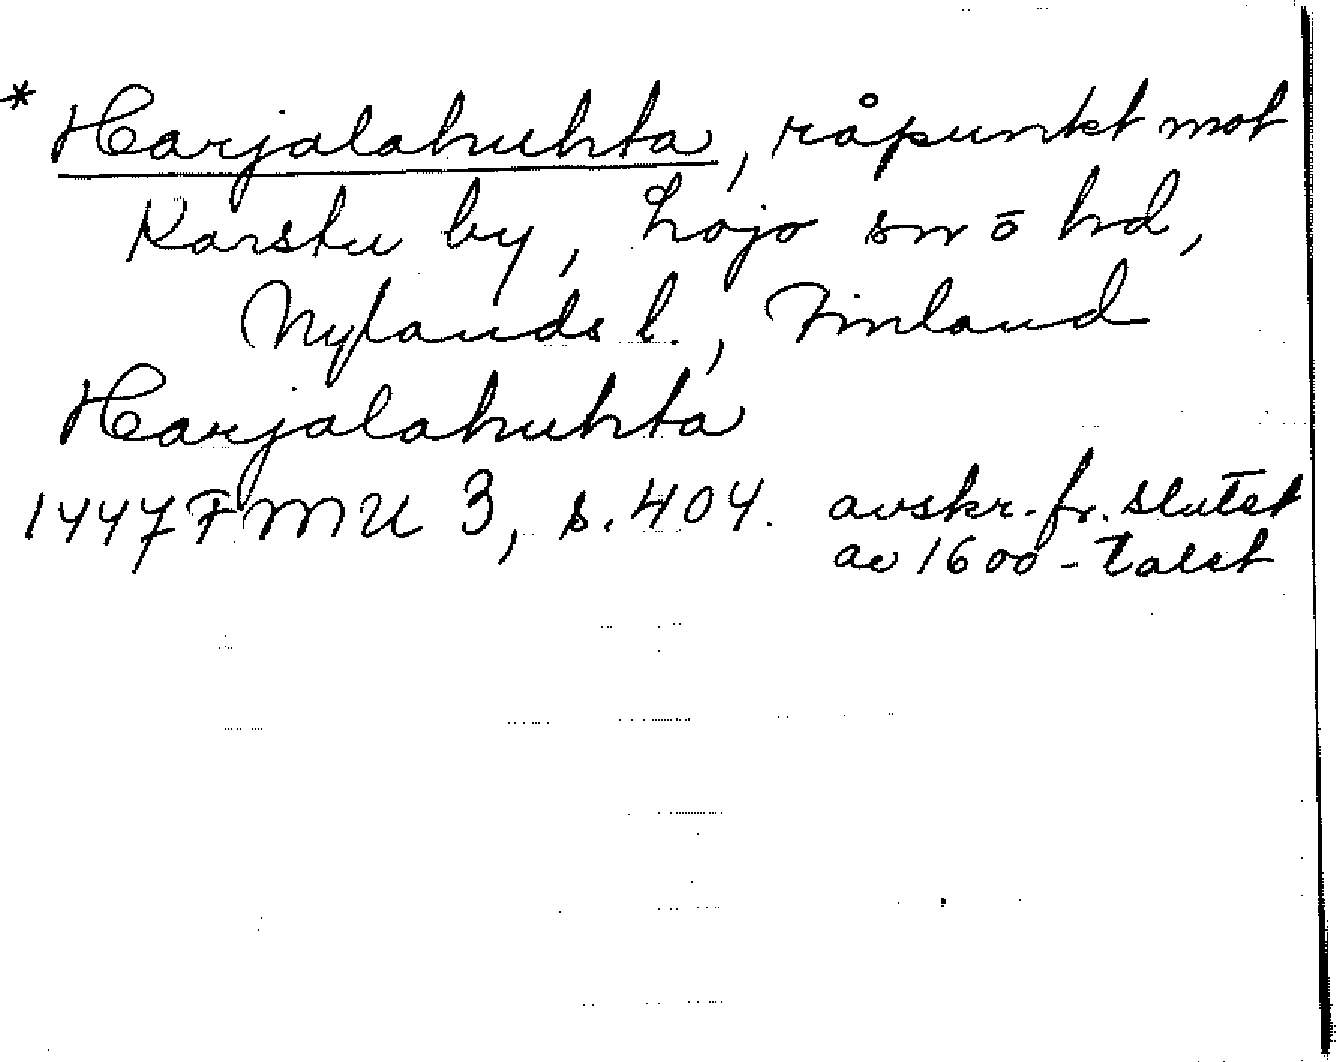 * Harjalahuhta, råpunkt mot
Karstu by, Lojo sn ō hd,
Nylands l., Finland
Harjalahuhta
1447 FMU 3, s. 404. avskr. fr. slutet
av 1600-talet